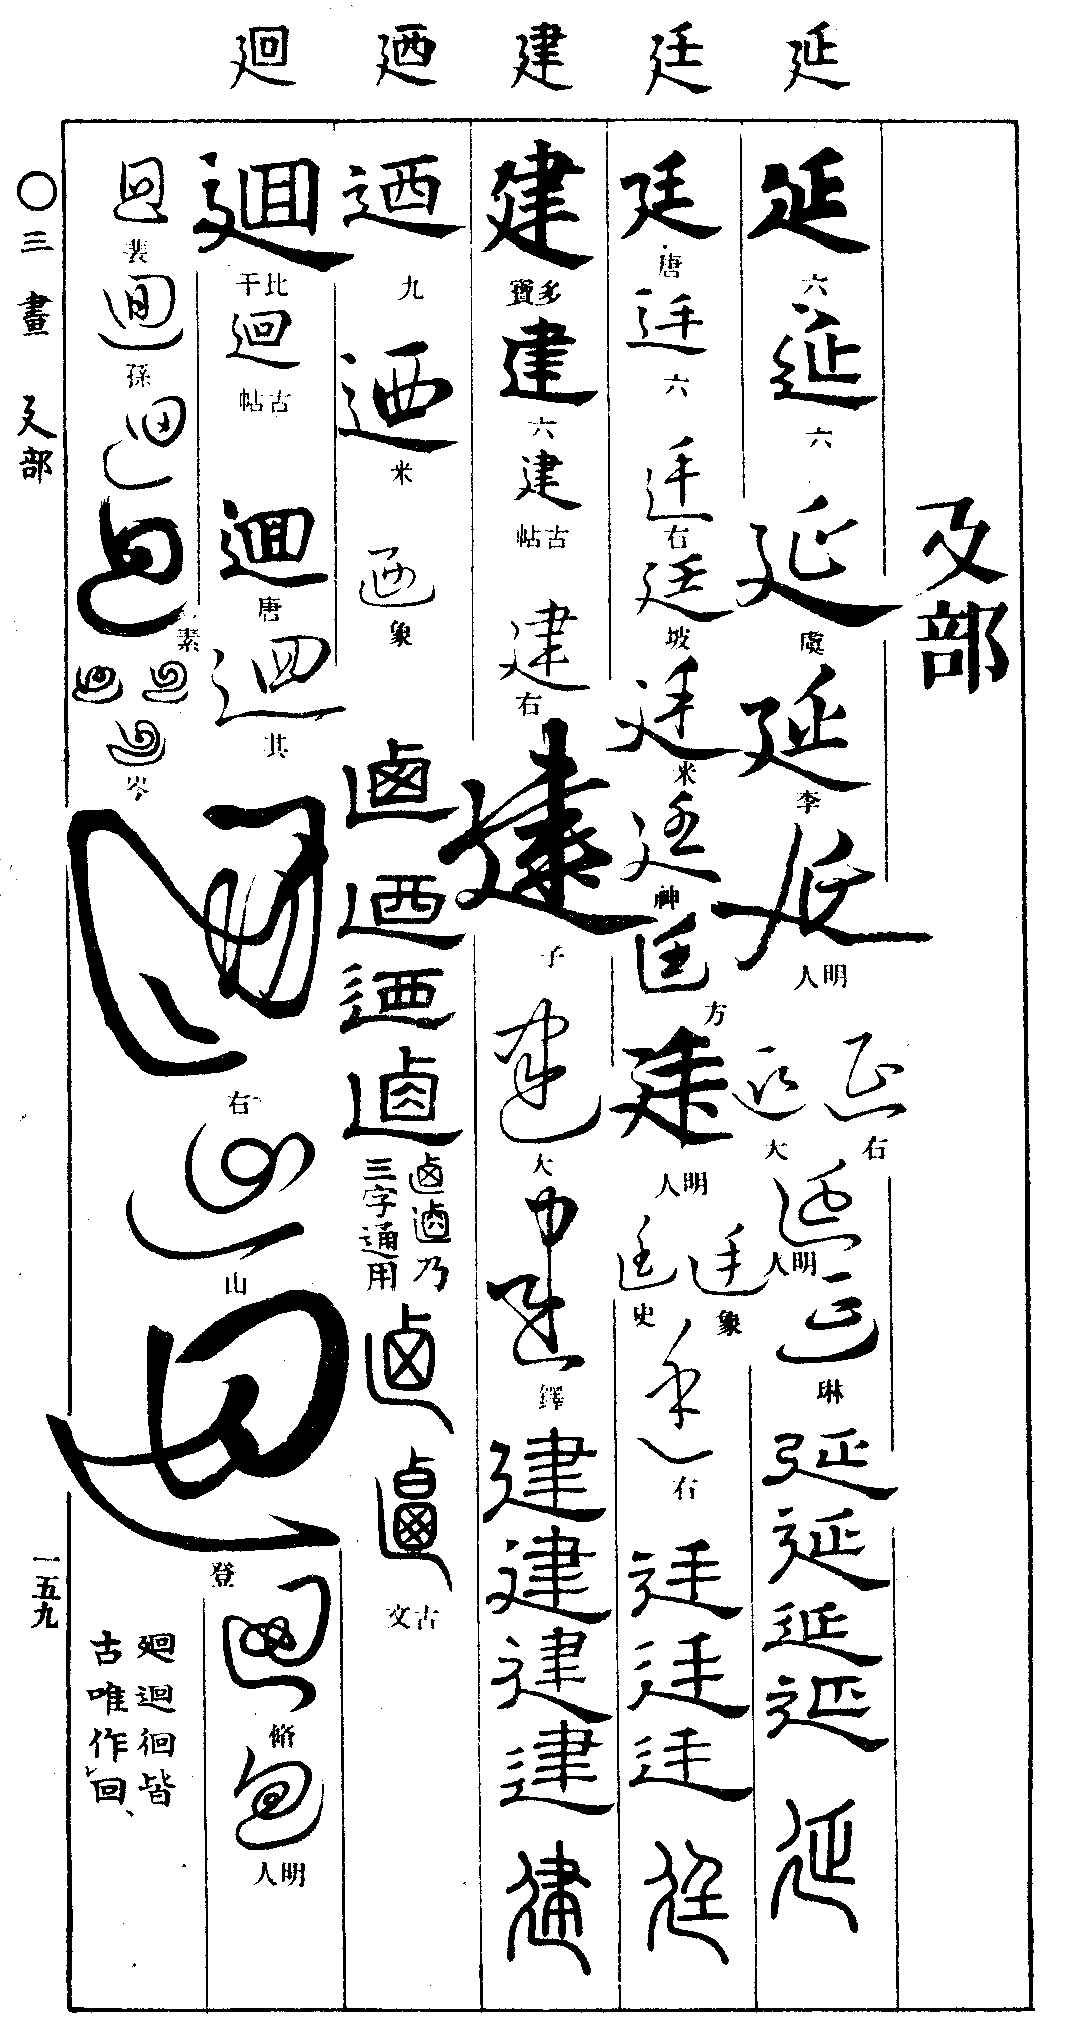 延 廷 建 廼 廻
廴部
延 六 延 六 延 虞 延 李 延 明人 延 右 延 大 延 明人 延 琳 延 延 延 延 延
廷 唐 廷 六 廷 右 廷 坡 廷 米 廷 神 廷 方 廷 明人 廷 象 廷 史 廷 右 廷 廷 廷 廷
建 多寶 建 六 建 古帖 建 右 建 子 建 大 建 鐸 建 建 建 建 建
迺 九 迺 米 迺 象 迺 迺
鹵逌乃
三字通用
古文
迴 比干 廻 古帖 迴 唐 迴 其 迴 右 迴 山 迴 登 迴 脩 迴 明人
回 裴 迴 孫 迴 迴 素 迴 迴 迴 岑
廻迴徊皆
古唯作回、
〇三畫 廴部
一五九